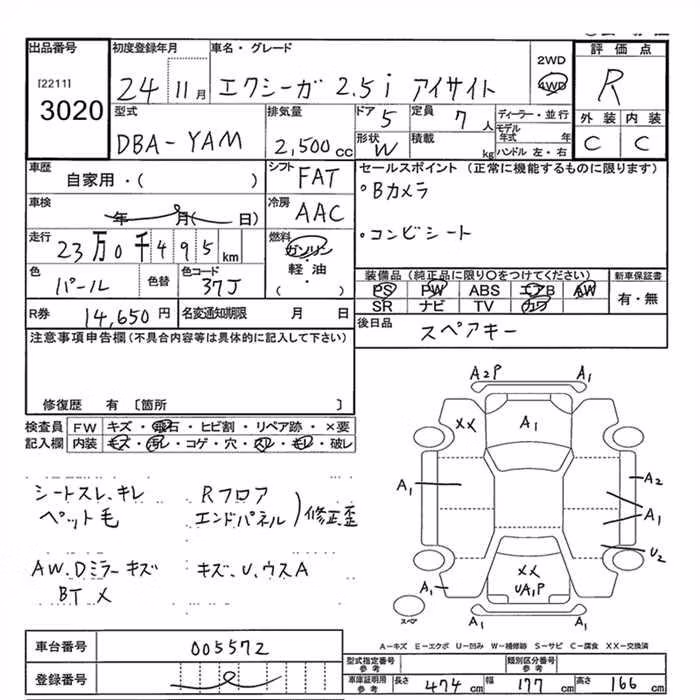 出品番号 初度登録年月 車名・グレード 評価点
[2211] 24 11月 エクシーガ 2.5i アイサイト 2WD 4WD R
3020 外装 内装
型式 排気量 ドア 定員 ディーラー・並行 C C
DBA-YAM 2,500cc 5 7人 モデル年式 年
形状 W 積載 kg ハンドル 左・右
車歴 シフト セールスポイント (正常に機能するものに限ります)
自家用・( ) FAT ・Bカメラ
車検 年 月( 日) 冷房 AAC
走行 燃料 ・コンビシート
23万0千495km ガソリン
軽・油
( ・ )
色 色替 色コード 装備品 (純正品に限り○をつけてください) 新車保証書
パール 37J PS PW ABS エアB AW 有・無
SR ナビ TV カワ
R券 14,650円 名変通知期限 月 日 後日品 スペアキー
注意事項申告欄(不具合内容等は具体的に記入して下さい)
修復歴 有 〔箇所 〕
検査員 FW キズ・飛石・ヒビ割・リペア跡・×要
記入欄 内装 キズ・汚レ・コゲ・穴・スレ・キレ・破レ
A2P A1
XX A1
A1 A2
A1
U2
XX
UA1P
A1 A1
スペア
シートスレ、キレ Rフロア
ペット毛 エンドパネル )修正歪
AW.Dミラーキズ キズ、U、ウスA
BTメ
A-キズ E-エクボ U-凹み W-補修跡 S-サビ C-腐食 XX-交換済
車台番号 005572
登録番号
型式指定番号 参考 類別区分番号 参考
車庫証明用 参考 長さ 474cm 幅 177cm 高さ 166cm